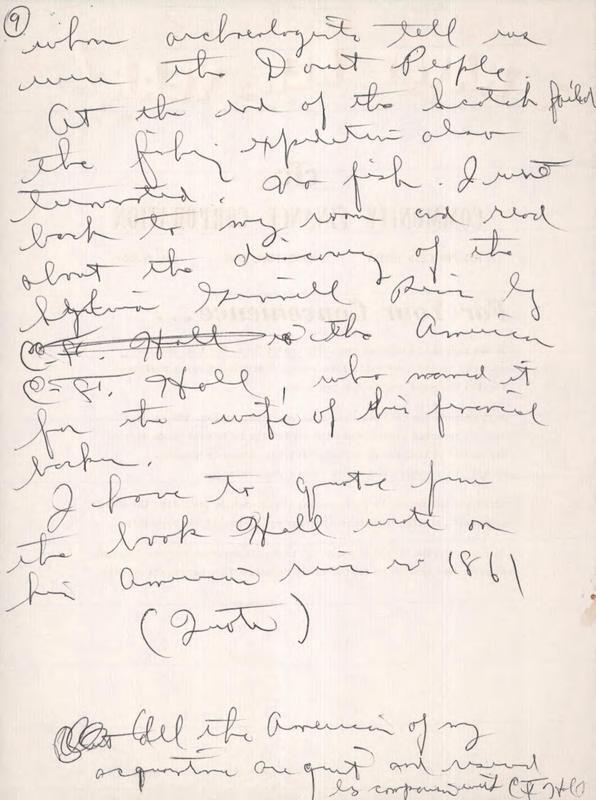 9
whom archeologists tell us
were the Dorset People.
At the end of the Scotch failed
the fishing expedition also
terminated. No fish. I went
back to my room and read
about the discovery of the
Sylvia Grinnell River by
C. F. Hall the American
C. F. Hall, who named it
for the wife of his financial
backer.
I have to quote from
the book Hall wrote on
his American river in 1861
(Quote)
All the Americans of my
acquaintance are quiet and reserved
by comparison with C F Hall